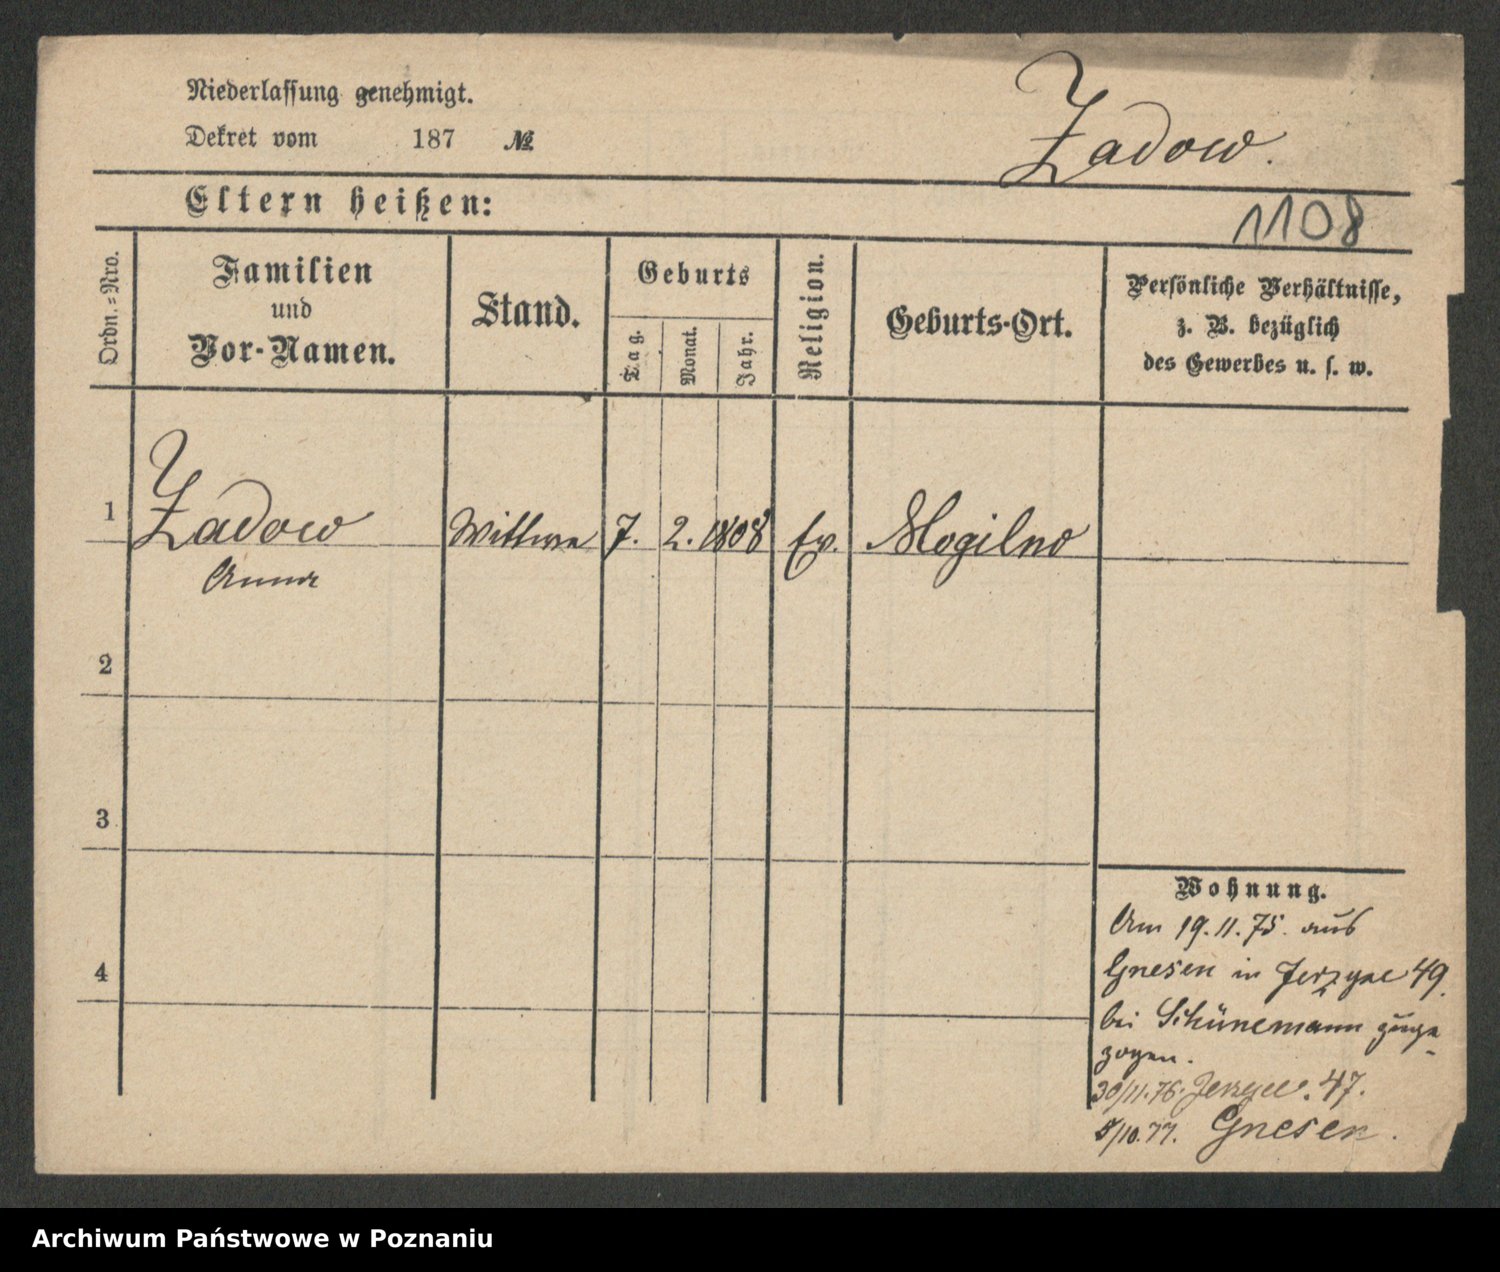 Niederlassung genehmigt.
Dekret vom 187 №
Zadow.
Eltern heißen:
1108
Ordn.=Nro.
Familien
und
Vor-Namen.
Stand.
Geburts
Tag.
Monat.
Jahr.
Religion.
Geburts-Ort.
Persönliche Verhältnisse,
z. B. bezüglich
des Gewerbes u. s. w.
1 Zadow Wittwe 7. 2. 1808 Ev. Mogilno
Anna
2
3
4
Wohnung.
Am 19.11.75. aus
Gnesen in 49.
bei Schünemann zuge-
zogen.
30/11.76. 47.
5/10.77. Gnesen.
Archiwum Państwowe w Poznaniu